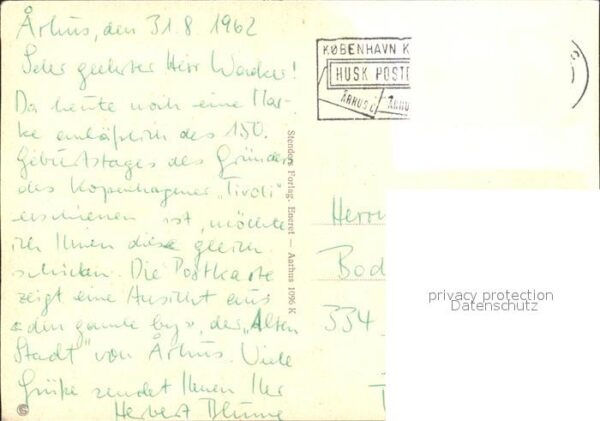 Århus, den 31.8.1962
Sehr geehrter Herr Wacker!
Da heute noch eine Mar-
ke anläßlich des 150.
Geburtstages des Gründers
des Kopenhagener „Tivoli"
erschienen ist, möchte
ich Ihnen diese gleich
schicken. Die Postkarte
zeigt eine Ansicht aus
«den gamle by», der „Alten
Stadt" von Århus. Viele
Grüße sendet Ihnen Ihr
Herbert Blume
Stenders Forlag. Eneret — Aarhus 1096 K
KØBENHAVN K
HUSK POST
ÅRHUS C
Herrn
Bod
334
privacy protection
Datenschutz